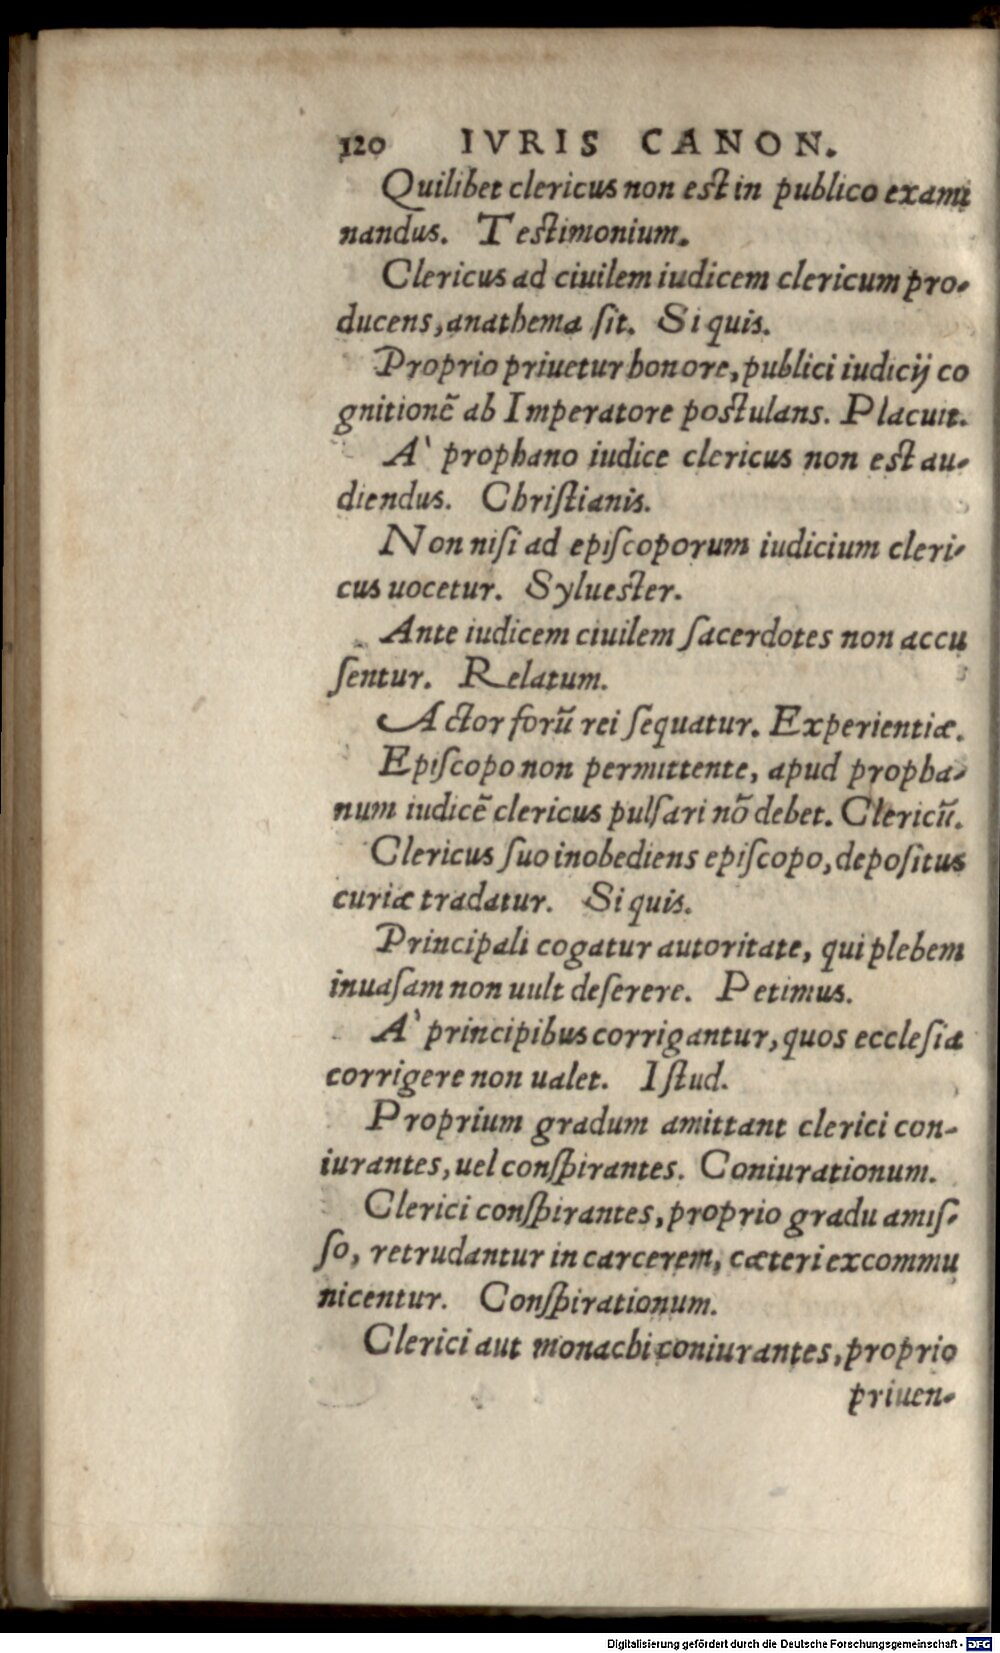 120 IVRIS CANON.
Quilibet clericus non est in publico exami
nandus. Testimonium.
Clericus ad ciuilem iudicem clericum pro-
ducens, anathema sit. Si quis.
Proprio priuetur honore, publici iudicij co
gnitionē ab Imperatore postulans. Placuit.
A` prophano iudice clericus non est au-
diendus. Christianis.
Non nisi ad episcoporum iudicium cleri-
cus uocetur. Syluester.
Ante iudicem ciuilem sacerdotes non accu
sentur. Relatum.
Actor forū rei sequatur. Experientiæ.
Episcopo non permittente, apud propha-
num iudicē clericus pulsari nō debet. Clericū.
Clericus suo inobediens episcopo, depositus
curiæ tradatur. Si quis.
Principali cogatur autoritate, qui plebem
inuasam non uult deserere. Petimus.
A` principibus corrigantur, quos ecclesia
corrigere non ualet. Istud.
Proprium gradum amittant clerici con-
iurantes, uel conspirantes. Coniurationum.
Clerici conspirantes, proprio gradu amis-
so, retrudantur in carcerem, cæteri excommu
nicentur. Conspirationum.
Clerici aut monachi coniurantes, proprio
priuen-
Digitalisierung gefördert durch die Deutsche Forschungsgemeinschaft - DFG